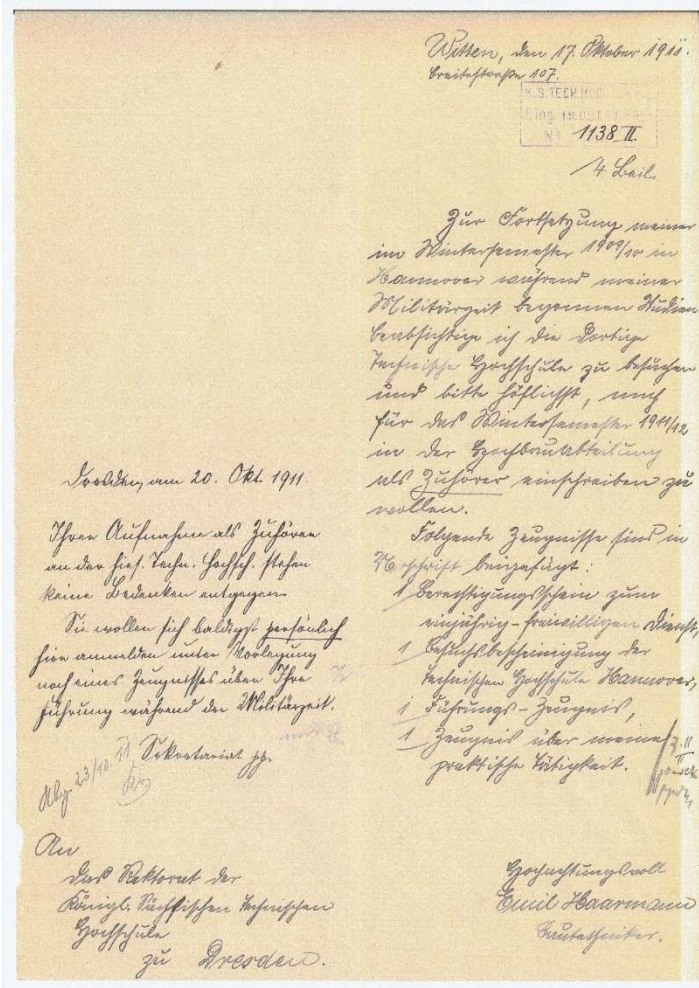 Witten, den 17. Oktober 1911.
Breitestraße 107.
K.S. TECH. HOC
Eing. 18. OKT. 1911
No 1138 II.
4 Beil.
Zur Fortsetzung meiner
im Wintersemester 1909/10 in
Hannover während meiner
Militärzeit begonnen Studien
beabsichtige ich die dortige
Technische Hochschule zu besuchen
und bitte höflichst, mich
für das Wintersemester 1911/12
in der Hochbauabteilung
als Zuhörer einschreiben zu
wollen.
Folgende Zeugnisse sind in
schrift beigefügt:
1 Berechtigungsschein zum
einjährig-freiwilligen Dienst,
1 Besuchsbescheinigung der
Technischen Hochschule Hannover,
1 Führungs-Zeugnis,
1 Zeugnis über meine
praktische Tätigkeit.
Hochachtungsvoll
Emil Haarmann
Bautechniker.
An
das Rektorat der
Königl. Sächsischen Technischen
Hochschule
zu Dresden.
Dresden, am 20. Okt. 1911.
Ihrer Aufnahme als Zuhörer
an der hies. Techn. Hochsch. stehen
keine Bedenken entgegen.
Sie wollen sich baldigst persönlich
hier anmelden unter Vorlegung
noch eines Zeugnisses über Ihre
Führung während der Militärzeit.
Sekretariat pp.
Abg. 23/10. 11